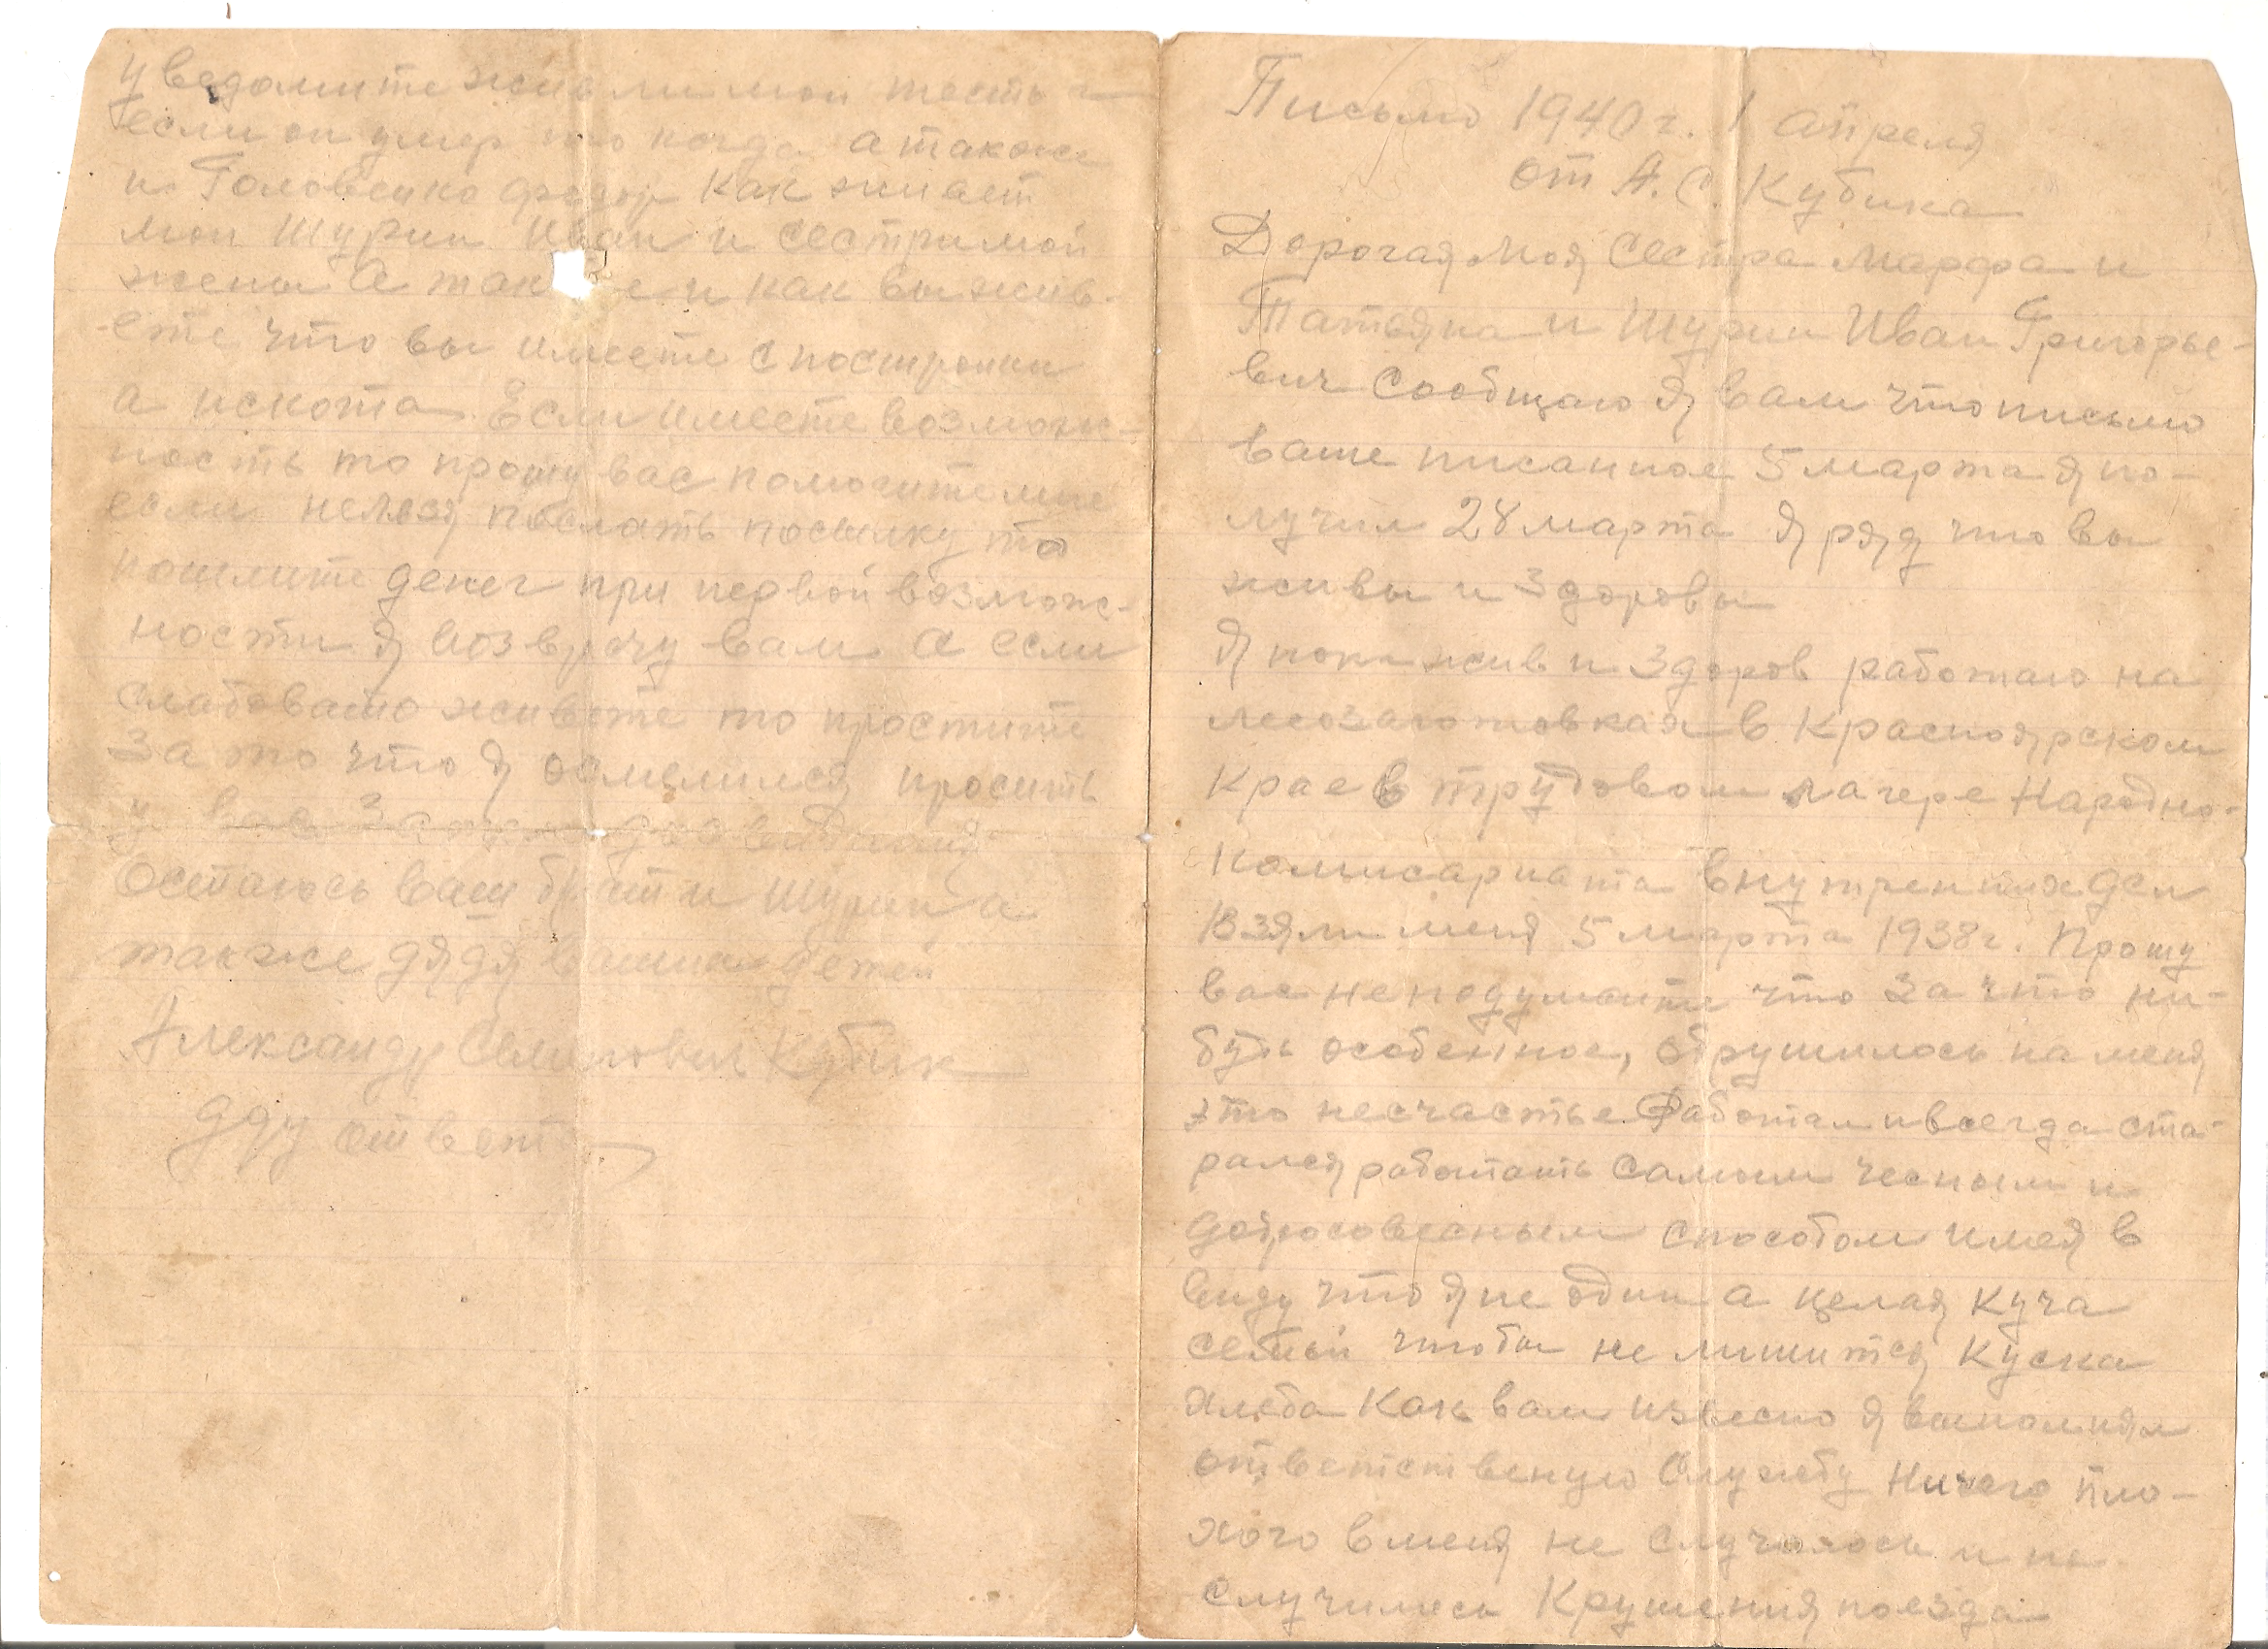 Письмо 1940 г. 1 апреля
от А. С. Кубика
Дорогая моя сестра Марфа и
Татьяна и шурин Иван Григорье-
вич Сообщаю я вам что письмо
ваше писанное 5 марта я по-
лучил 28 марта я ряд что вы
живы и здоровы
Я пока жив и здоров работаю на
лесозаготовках в Красноярском
крае в трудовом лагере Народно-
комисариата внутренних дел
Взяли меня 5 марта 1938 г. Прошу
вас не подумайте что за что ни-
будь особенное, обрушилось на меня
это несчастье Работал и всегда ста-
рался работать самым чесным и
добросовесным способом имея в
виду что я не один а целая куча
семьи чтобы не лишится куска
хлеба Как вам извесно я выполнял
ответственую службу Ничего пло-
хого в меня не случалось и не
случилось Крушения поезда
уведомите жив ли мой тесть и
если он умер то когда а также
и Головенко федор Как живет
мой шурин Иван и сестры мой
жены А также и как вы жив-
ете что вы имеете с постройки
а и скота Если имеете возмож-
ность то прошу вас помогите мне
если нельзя послать посылку то
пошлите денег при первой возмож-
ности я возврачу вам А если
слабовато живете то простите
за то что я осмелился просить
у вас досвидания
Остаюсь ваш брат и шурин а
также дядя ваших детей
Александр Семенович Кубик
Жду ответа